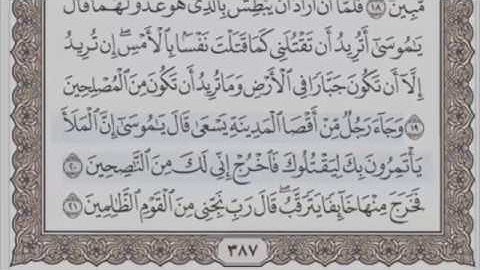 مُّبِينٌ ۝١٨ فَلَمَّآ أَنْ أَرَادَ أَن يَبْطِشَ بِٱلَّذِى هُوَ عَدُوٌّ لَّهُمَا قَالَ
يَٰمُوسَىٰٓ أَتُرِيدُ أَن تَقْتُلَنِى كَمَا قَتَلْتَ نَفْسًۢا بِٱلْأَمْسِ ۖ إِن تُرِيدُ
إِلَّآ أَن تَكُونَ جَبَّارًا فِى ٱلْأَرْضِ وَمَا تُرِيدُ أَن تَكُونَ مِنَ ٱلْمُصْلِحِينَ
۝١٩ وَجَآءَ رَجُلٌ مِّنْ أَقْصَا ٱلْمَدِينَةِ يَسْعَىٰ قَالَ يَٰمُوسَىٰٓ إِنَّ ٱلْمَلَأَ
يَأْتَمِرُونَ بِكَ لِيَقْتُلُوكَ فَٱخْرُجْ إِنِّى لَكَ مِنَ ٱلنَّٰصِحِينَ ۝٢٠
فَخَرَجَ مِنْهَا خَآئِفًا يَتَرَقَّبُ ۖ قَالَ رَبِّ نَجِّنِى مِنَ ٱلْقَوْمِ ٱلظَّٰلِمِينَ ۝٢١
٣٨٧